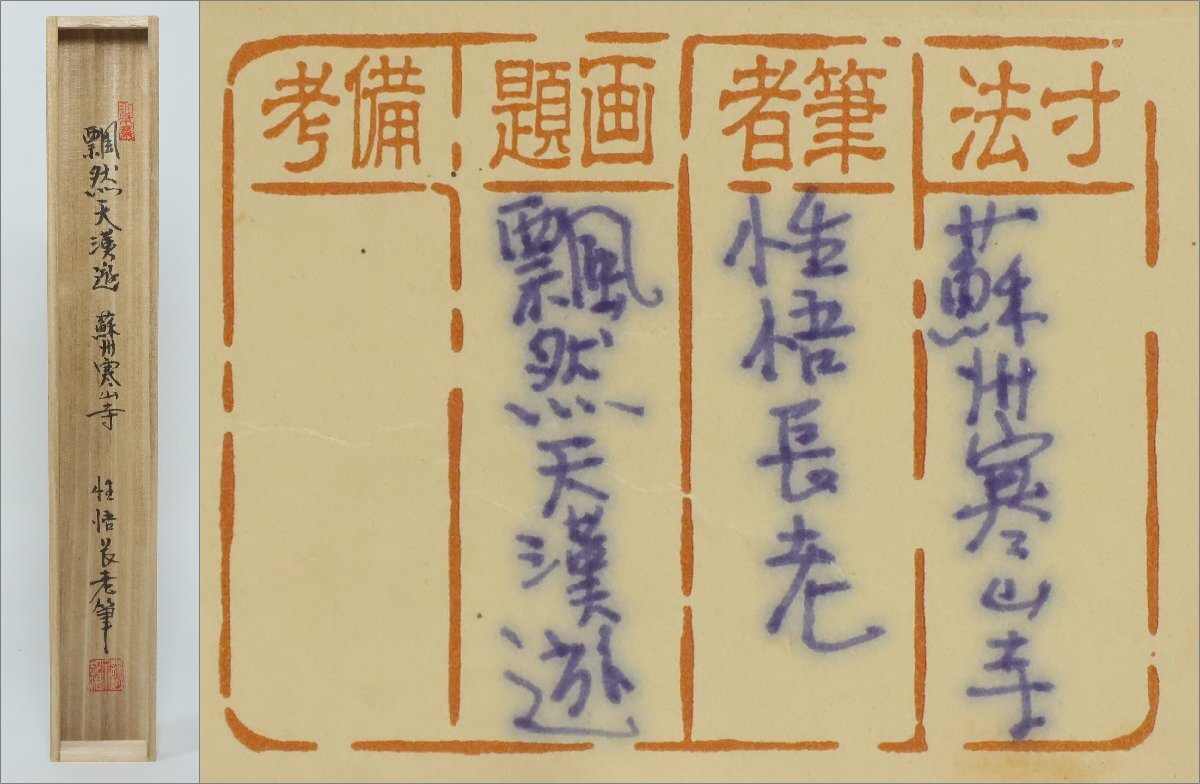 飄然天漢遊 蘇州寒山寺 性悟長老筆
寸法
蘇州寒山寺
筆者
性悟長老
画題
飄然天漢遊
備考